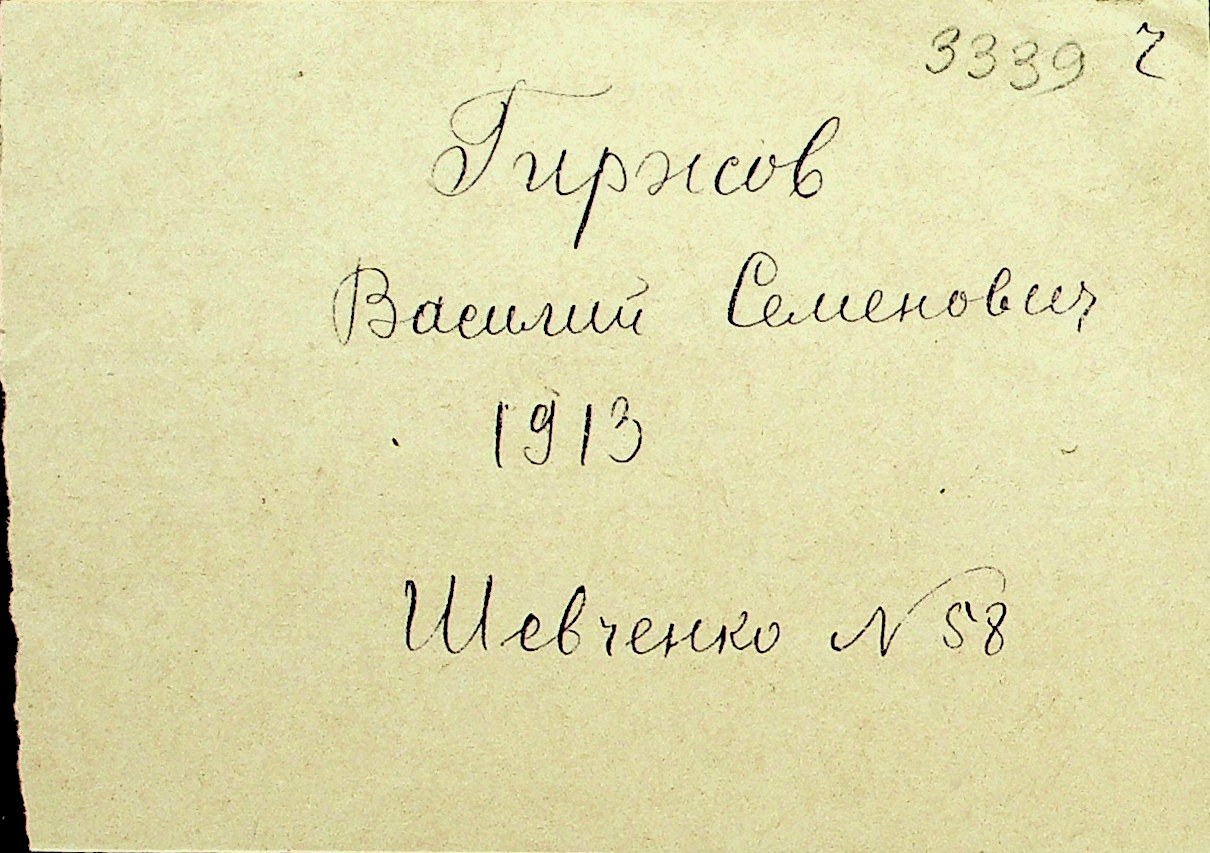 3339 ч
Гиржов
Василий Семенович
1913
Шевченко N 58